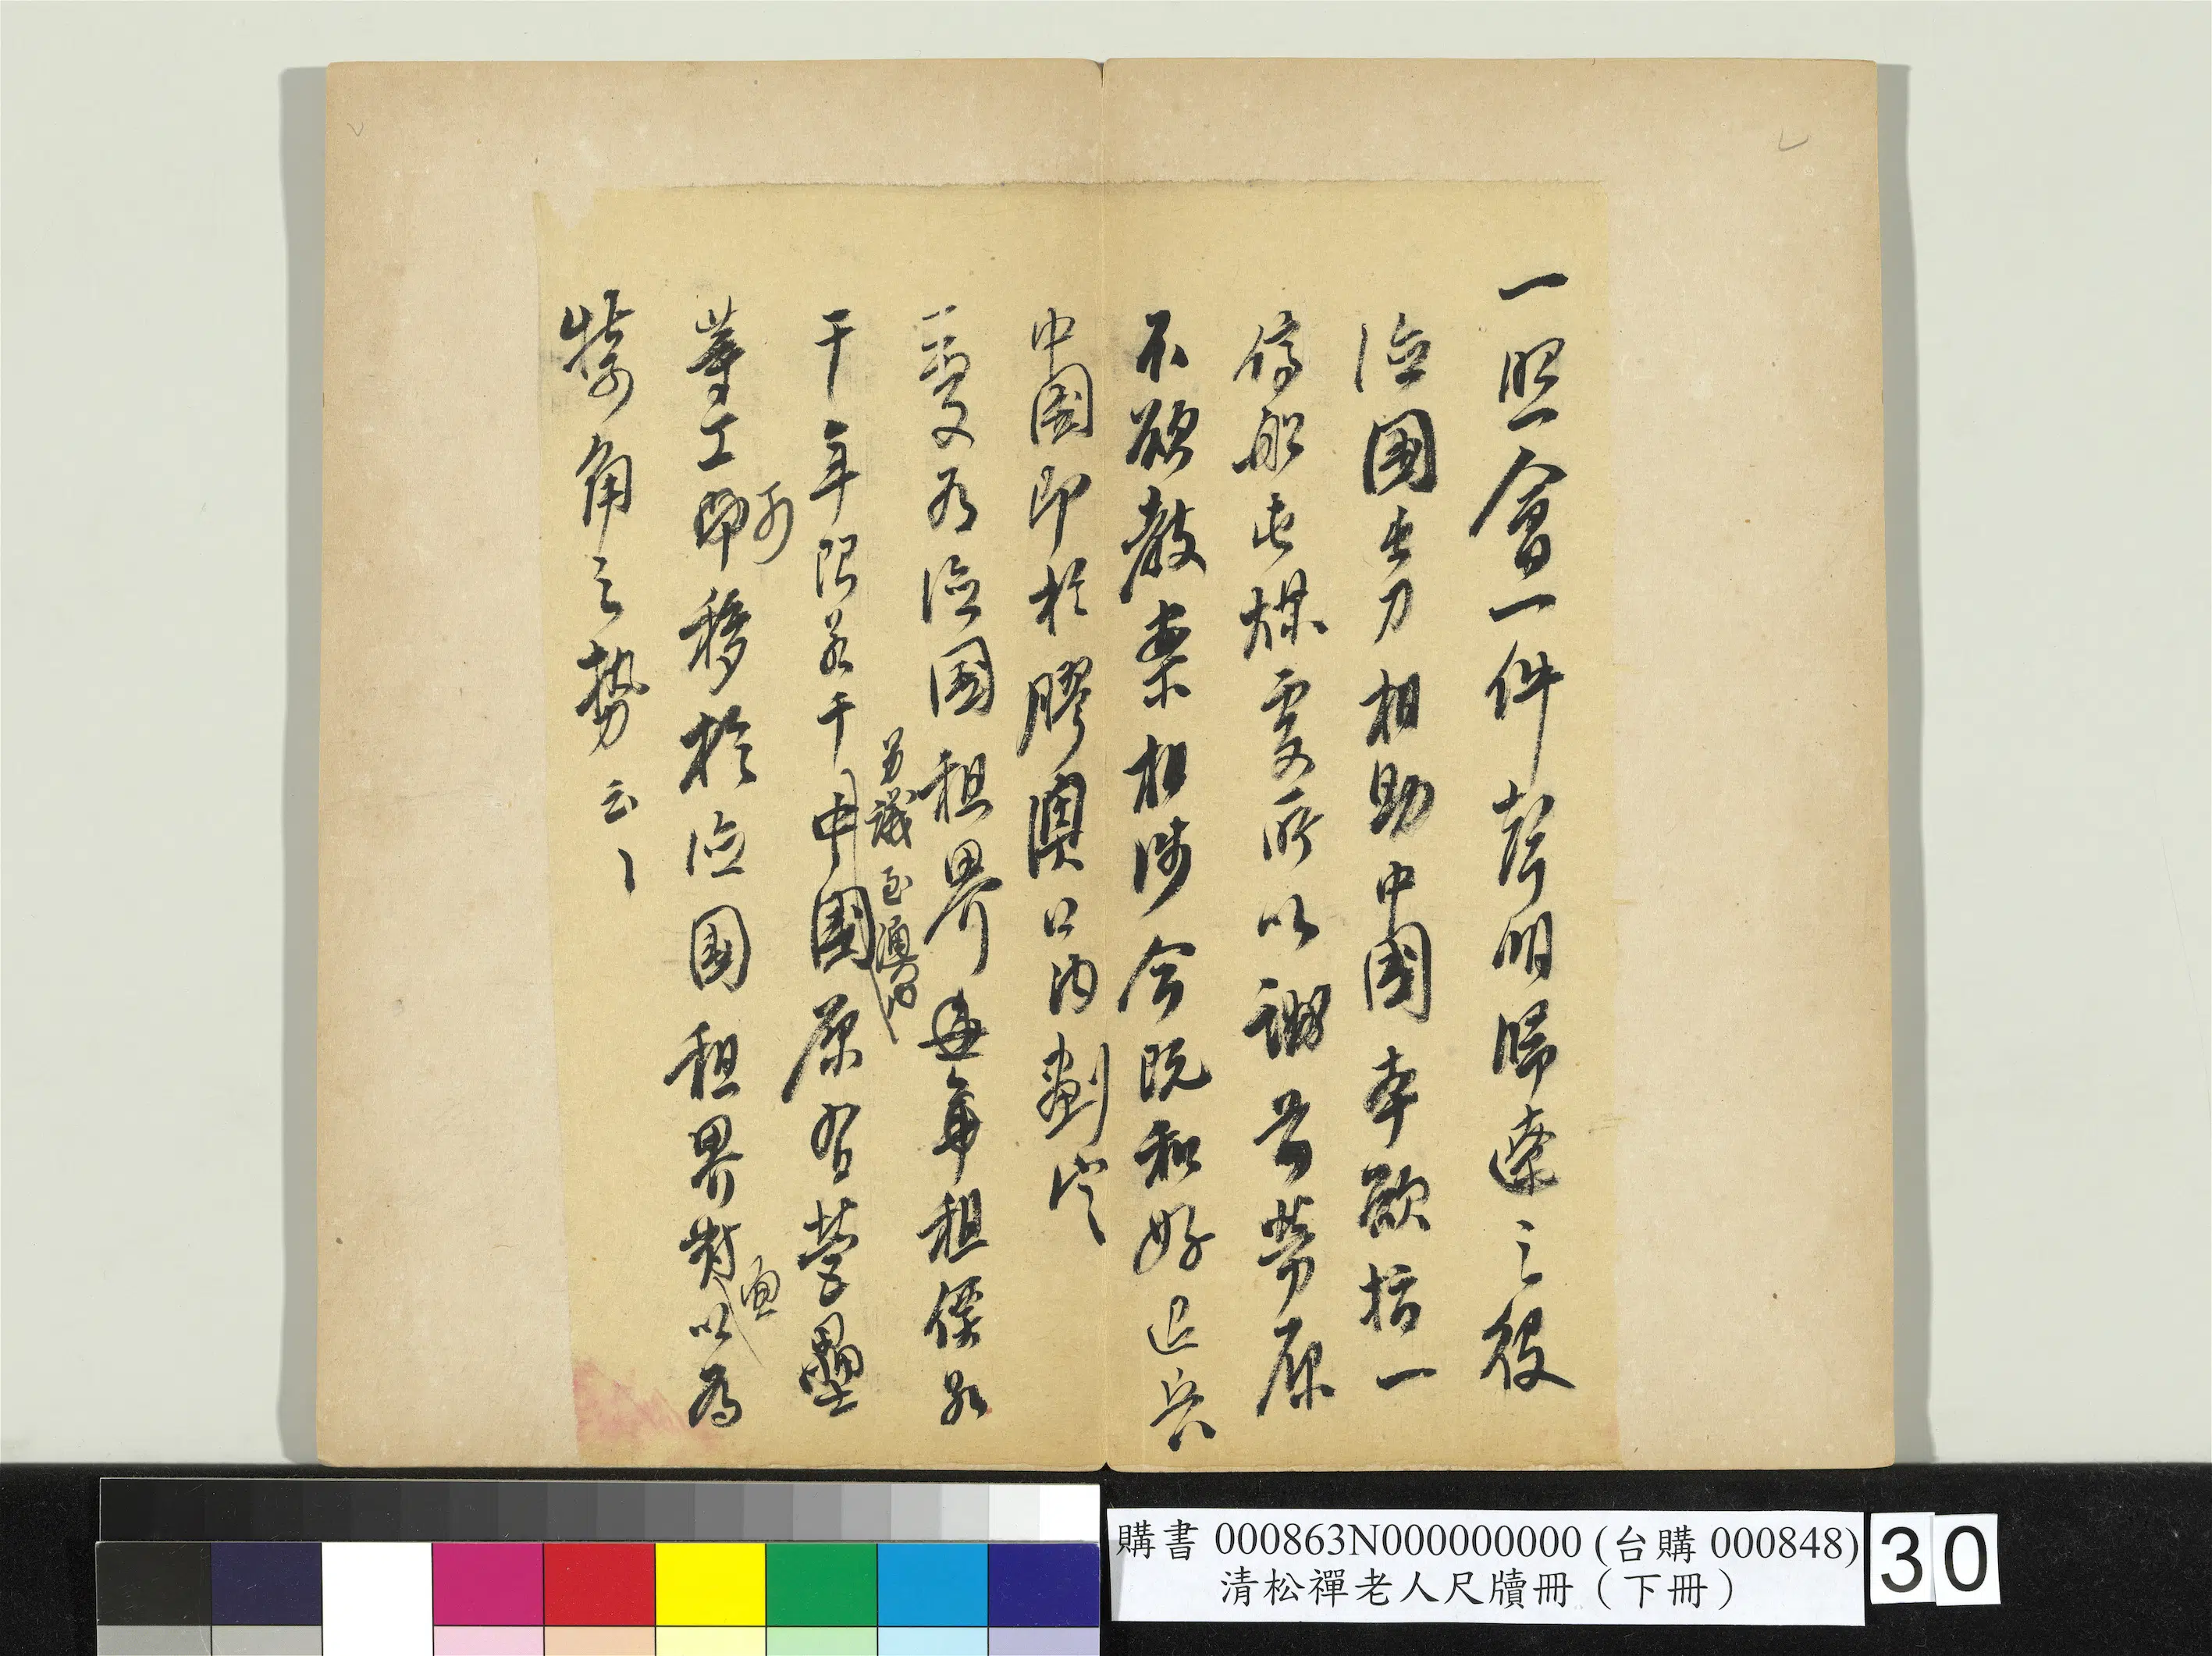 一照會一件聲明歸遼之役
德國出力相助中國本欲指一
停船屯煤處所以酬昔勞原
不欲教案相涉今既和好退兵
中國即於膠澳口內劃定
一處又为德國租界每年租價若
干年限若干中國原有營壘
另議至澳口內
等工可即移於德國租界對面以為
犄角之勢云〻
購書 000863N000000000 (台購 000848)
清松禪老人尺牘冊（下冊）
30